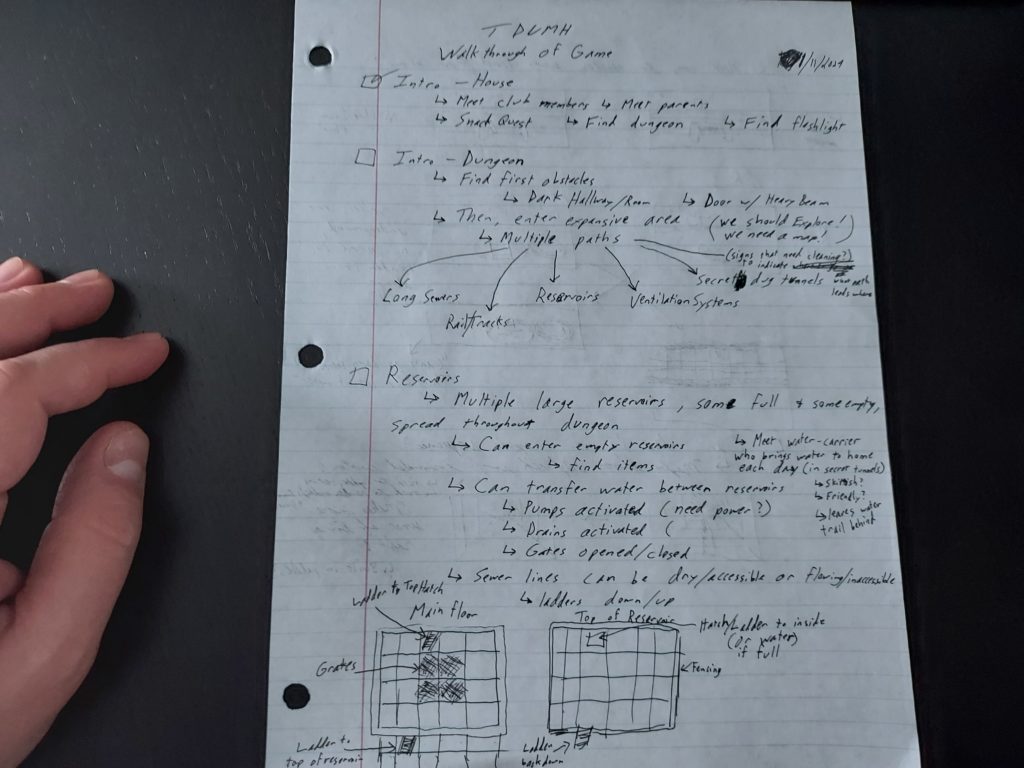 TDUMH
Walkthrough of Game
/11/2021
Intro - House
↳ Meet club members ↳ Meet parents
↳ Snack Quest ↳ Find dungeon ↳ Find flashlight
Intro - Dungeon
↳ Find first obstacles
↳ Dark Hallway/Room ↳ Door w/ Heavy Beam
↳ Then, enter expansive area (we should Explore!
we need a map!)
↳ Multiple paths
(signs that need cleaning?)
to indicate
which path
leads where
Long Sewers
Rail/Tracks
Reservoirs
Ventilation Systems
Secret dug tunnels
Reservoirs
↳ Multiple large reservoirs, some full & some empty,
spread throughout dungeon
↳ Can enter empty reservoirs
↳ find items
↳ Meet water-carrier
who brings water to home
each day (in secret tunnels)
↳ Skittish?
↳ Friendly?
↳ leaves water
trail behind
↳ Can transfer water between reservoirs
↳ Pumps activated (need power?)
↳ Drains activated (
↳ Gates opened/closed
↳ Sewer lines can be dry/accessible or flowing/inaccessible
↳ ladders down/up
Ladder to Top Hatch
Main floor
Grates
Ladder to
top of reservoir
Top of Reservoir
Hatch/Ladder to inside
(or water)
if full
Fencing
Ladder
back down